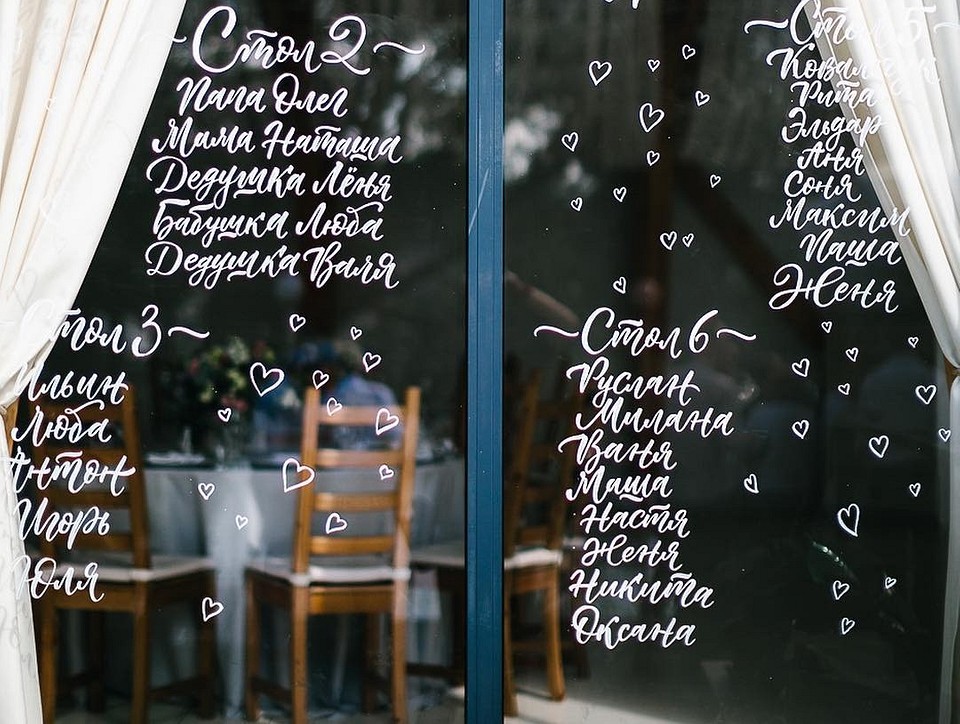 Стол 2
Папа Олег
Мама Наташа
Дедушка Лёня
Бабушка Люба
Дедушка Валя
Стол 3
Ильин
Люба
Антон
Игорь
Юля
Стол 5
Ковальчук
Рита
Эльдар
Аня
Соня
Максим
Паша
Женя
~Стол 6~
Руслан
Милана
Ваня
Маша
Настя
Женя
Никита
Оксана